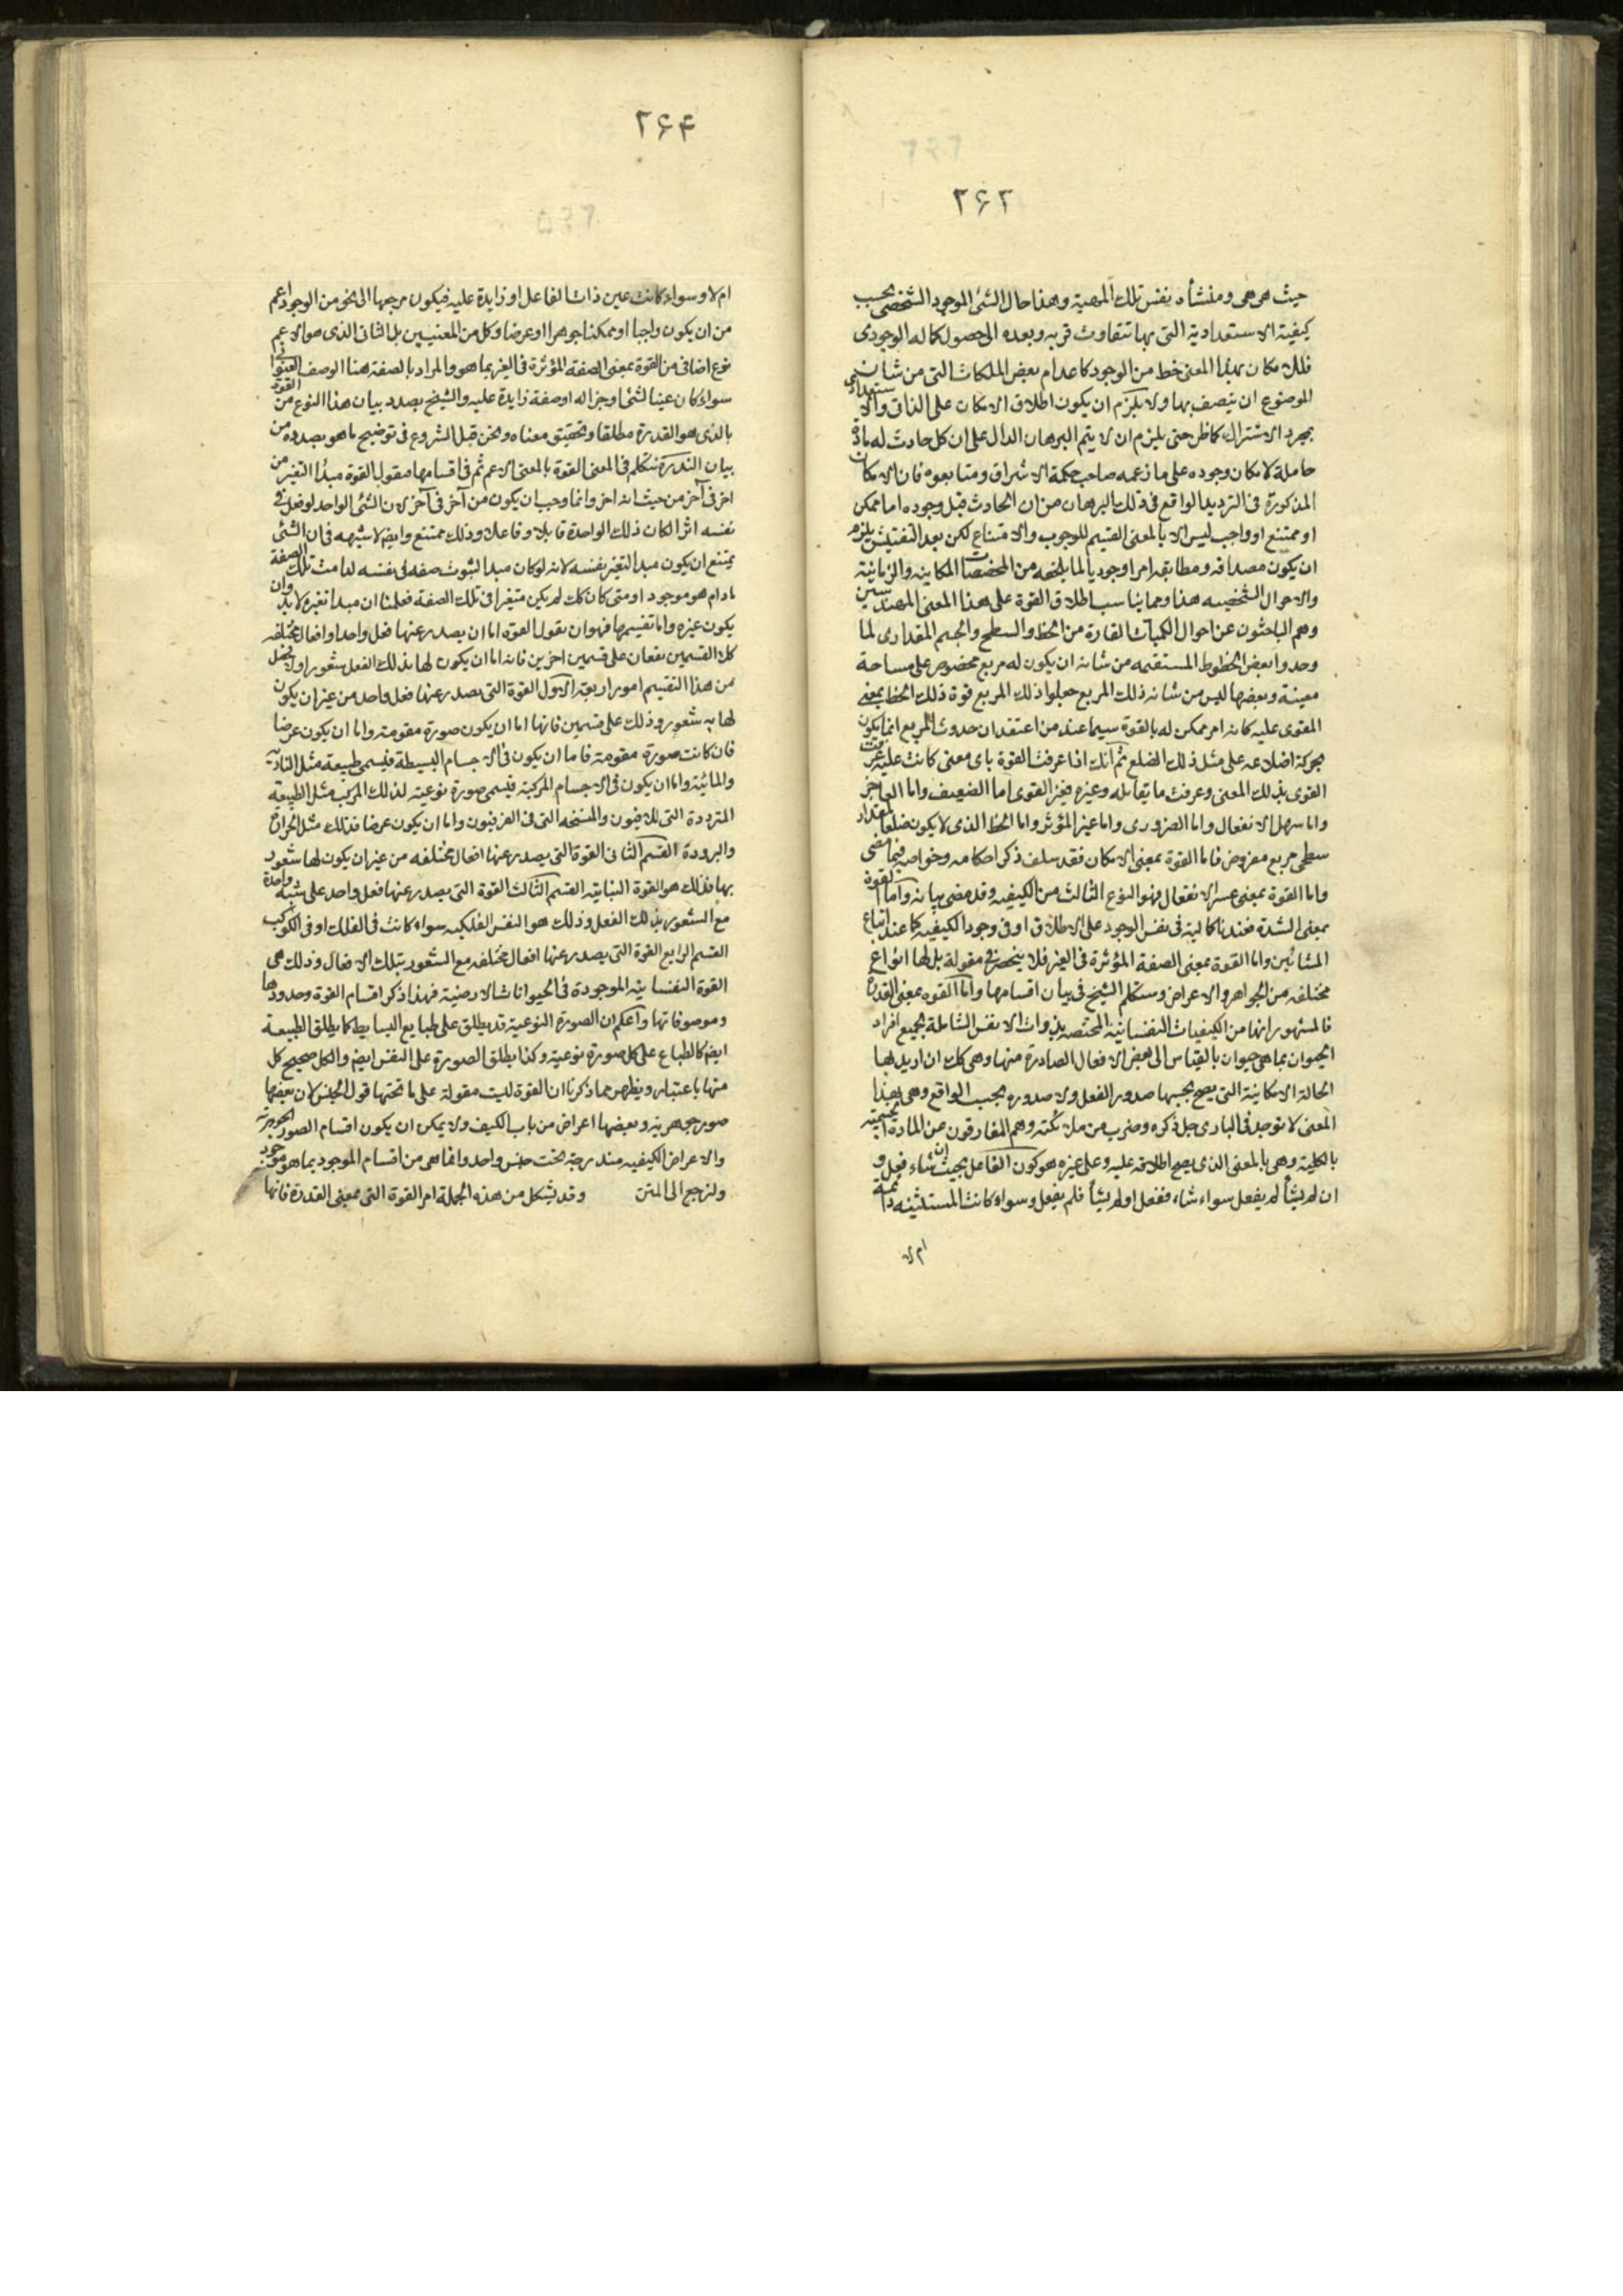 ۲۶۳
حيث هى هى ومنشأه نفس تلك المهية وهذا حال الشئ الموجود الشخصى بحسب
كيفية الاستعدادية التى بها تتفاوت قربه وبعده الى حصول كماله الوجودى
فللامكان بهذا المعنى خط من الوجود كاعدام بعض الملكات التى من شان
الموضوع ان يتصف بها ولا يلزم ان يكون اطلاق الامكان على الذاتى والاستعدادى
بمجرد الاشتراك كما ظن حتى يلزم ان لا يتم البرهان الدال على ان كل حادث له مادة
حاملة لامكان وجوده على ما زعمه صاحب حكمة الاشراق ومتابعوه فان الامكان
المذكورة فى الترديد الواقع فى ذلك البرهان من ان الحادث قبل وجوده اما ممكن
او ممتنع او واجب ليس الا بالمعنى القسيم للوجوب والامتناع لكن بعد التفتيش يلزم
ان يكون مصداقه ومطابقه امرا وجوديا لما يلحقه من المخصصات المكانيه والزمانية
والاحوال الشخصيه هذا ومما يناسب اطلاق القوة على هذا المعنى المهندسين
وهم الباحثون عن احوال الكميات القارة من الخط والسطح والجسم المقدارى لما
وجدوا بعض الخطوط المستقيمه من شانه ان يكون له مربع مخصوص على مساحة
معينة وبعضها ليس من شانه ذلك المربع جعلوا ذلك المربع قوة ذلك الخط بمعنى
المقوى عليه كانه امر ممكن له بالقوة سيما عند من اعتقد ان حدوث المربع انما يكون
بحركة اضلاعه على مثل ذلك الضلع ثم انك اذا عرفت القوة باى معنى كانت عليه عرفت
القوى بذلك المعنى وعرفت ما يقابله وغيره فغير القوى اما الضعيف واما العاجز
واما سهل الانفعال واما الضرورى واما غير المؤثر واما الخط الذى لا يكون ضلعا لمقدار
سطحى مربع مفروض فاما القوة بمعنى الامكان فقد سلف ذكر احكامه وخواصه فيما مضى
واما القوة بمعنى عسر الانفعال فهو النوع الثالث من الكيفيه وقد مضى بيانه واما القوة
بمعنى الشدة فعندنا كمالية فى نفس الوجود على الاطلاق او فى وجود الكيفيه كما عند اتباع
المشائين واما القوة بمعنى الصفة المؤثرة فى الغير فلا ينحصر فى مقولة بل لها انواع
مختلفه من الجواهر والاعراض وستكلم الشيخ فى بيان اقسامها واما القوه بمعنى القدرة
فالمشهور انها من الكيفيات النفسانية المختصه بذوات الانفس الشاملة لجميع افراد
الحيوان بما هى حيوان بالقياس الى بعض الافعال الصادرة منها وهى كك ان اريد بها
الحالة الامكانية التى يصح بحسبها صدور الفعل ولا صدوره بحسب الواقع وهى بهذا
المعنى لا توجد فى البارى جل ذكره وضرب من ملائكته وهم المفارقون عن المادة الجسمية
بالكلية وهى بالمعنى الذى يصح اطلاقه عليه وعلى غيره هو كون الفاعل بحيث ان شاء فعل و
ان لم يشأ لم يفعل سواء شاء ففعل او لم يشأ فلم يفعل وسواء كانت المستثنيه دائمة
ام لا
۲۶۴
ام لا وسواء كانت عين ذات الفاعل او زايدة عليه فيكون مرجعها الى نحو من الوجود اعم
من ان يكون واجبا او ممكنا جوهرا او عرضا وكل من المعنيين بل الثانى الذى هو الاعم
نوع اضافى من القوة بمعنى الصفة المؤثرة فى الغير بما هو والمراد بالصفة هنا الوصف العنوانى
سواء كان عينا لشئ او جزا له او صفة زايدة عليه والشيخ بصدد بيان هذا النوع من القوة
بالذى هو القدرة مطلقا وتحقيق معناه ونحن قبل الشروع فى توضيح ما هو بصدده من
بيان القدرة نتكلم فى المعنى القوة بالمعنى الاعم ثم فى اقسامها فنقول القوة مبدأ التغير من
اخر فى آخر من حيث انه اخر وانما وجب ان يكون من آخر فى آخر لان الشئ الواحد لو فعل فى
نفسه اثرا لكان ذلك الواحدة قابلا وفاعلا وذلك ممتنع وايضم لا شبهه فى ان الشئ
يمتنع ان يكون مبدا لتغير نفسه لانه لو كان مبدا لثبوت صفه فى نفسه لدامت تلك الصفة
مادام هو موجود او متى كان كك لم يكن متغيرا فى تلك الصفه فعلمنا ان مبدا تغيره لابد وان
يكون غيره واما تقسيمها فهو ان نقول القوه اما ان يصدر عنها فعل واحد او افعال مختلفه
كلا القسمين يقعان على قسمين اخرين فانه اما ان يكون لها بذلك الفعل شعور او لا فحصل
من هذا التقسيم امور اربعة الاول القوة التى يصدر عنها فعل واحد من غير ان يكون
لها به شعور وذلك على قسمين فانها اما ان يكون صورة مقومة واما ان يكون عرضا
فان كانت صورة مقومته فاما ان يكون فى الاجسام البسيطة فيسمى طبيعة مثل النارية
والمائية واما ان يكون فى الاجسام المركبة فيسمى صورة نوعية لذلك المركب مثل الطبيعة
المتردة التى للافيون والمسخنه التى فى الفربيون واما ان يكون عرضا فذلك مثل الحرارة
والبرودة القسم الثانى القوة التى يصدر عنها افعال مختلفه من غير ان يكون لها شعور
بها فذلك هو القوة النباتيه القسم الثالث القوة التى يصدر عنها فعل واحد على نسبة واحدة
مع الشعور بذلك الفعل وذلك هو النفس الفلكيه سواء كانت فى الفلك او فى الكوكب
القسم الرابع القوة التى يصدر عنها افعال مختلفه مع الشعور بتلك الافعال وذلك هى
القوة النفسانيه الموجودة فى الحيوانات الارضية فهذا ذكر اقسام القوة وحدودها
وموصوفاتها واعلم ان الصورة النوعية قد يطلق على طبايع البسايط كما يطلق الطبيعة
ايضم كالطباع على كل صورة نوعيته وكذا يطلق الصورة على النفس ايضم والكل صحيح كل
منها باعتبار ويظهر مما ذكرنا ان القوة ليت مقولة على ما تحتها قول الجنس لان بعضها
صور جوهرية وبعضها اعراض من باب الكيف ولا يمكن ان يكون اقسام الصور الجوهرية
والاعراض الكيفيه مندرجة تحت جنس واحد وانما هى من اقسام الموجود بما هو موجود
ولنرجع الى المتن وقد يشكل من هذه الجملة امر القوة التى بمعنى القدرة فانها